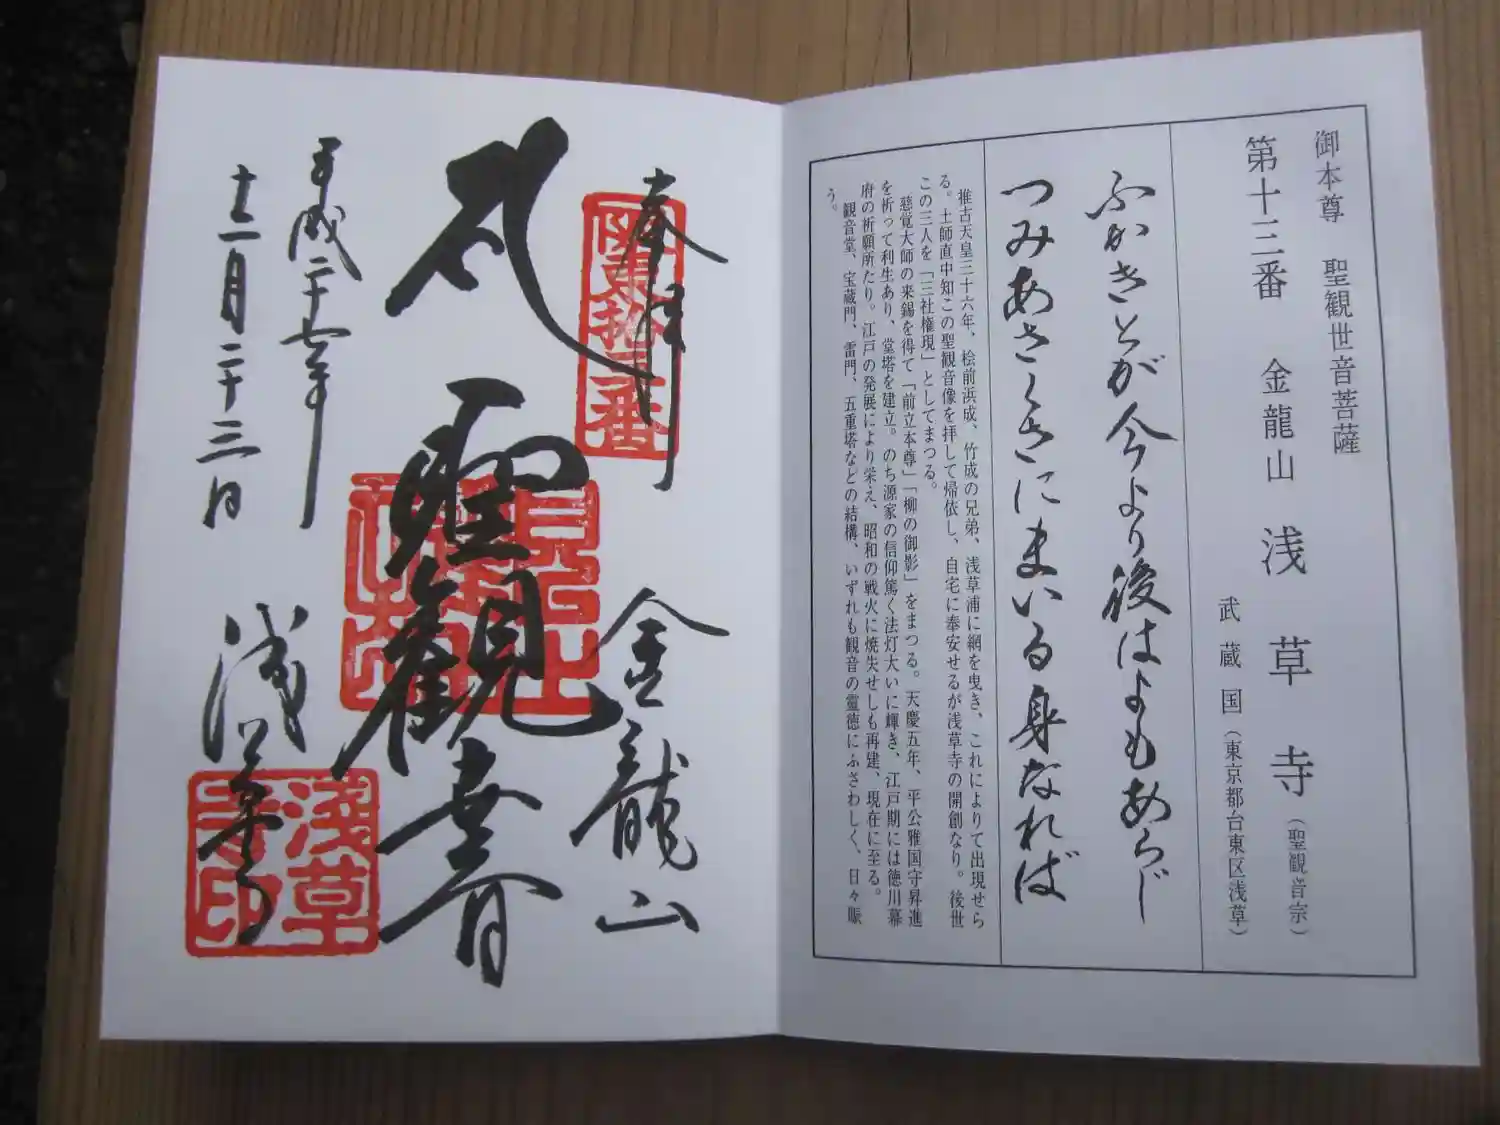 御本尊 聖観世音菩薩
第十三番 金龍山 浅草寺(聖観音宗)
武蔵国(東京都台東区浅草)
ふかきとが今より後はよもあらじ
つみあさくさにまいる身なれば
推古天皇三十六年、桧前浜成、竹成の兄弟、浅草浦に網を曳き、これによりて出現せら
る。土師直中知この聖観音像を拝して帰依し、自宅に奉安せるが浅草寺の開創なり。後世
この三人を「三社権現」としてまつる。
慈覚大師の来錫を得て「前立本尊」「柳の御影」をまつる。天慶五年、平公雅国守昇進
を祈って利生あり、堂塔を建立。のち源家の信仰篤く法灯大いに輝き、江戸期には徳川幕
府の祈願所たり。江戸の発展により栄え、昭和の戦火に焼失せしも再建、現在に至る。
観音堂、宝蔵門、雷門、五重塔などの結構、いずれも観音の霊徳にふさわしく、日々賑
う。
奉拝
坂東拾三番
金龍山
聖観音
平成二十七年
十一月二十三日
浅草寺
浅草
寺印